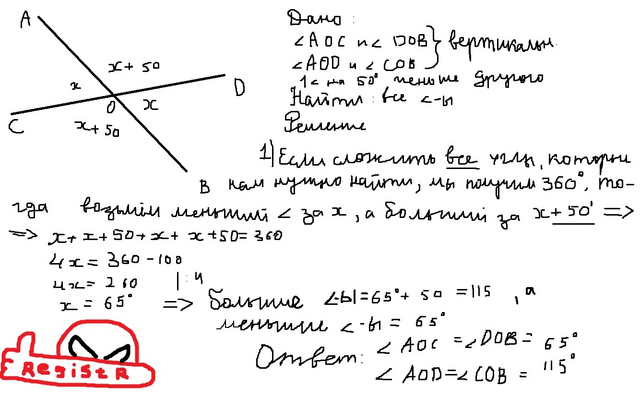 A
x + 50
x
D
O
x
C
x + 50
B
Дано:
∠AOC и ∠DOB } вертикальн.
∠AOD и ∠COB
1∠ на 50° меньше другого
Найти: все ∠-ы
Решение
1) Если сложить все углы, которые
нам нужно найти, мы получим 360°, то-
гда возьмём меньший ∠ за x, а больший за x + 50° =>
=> x + x + 50 + x + x + 50 = 360
4x = 360 - 100
4x = 260 | : 4
x = 65° => больше ∠-ы = 65° + 50 = 115°, а
меньшие ∠-ы = 65°
Ответ: ∠AOC = ∠DOB = 65°
∠AOD = ∠COB = 115°
RegistR